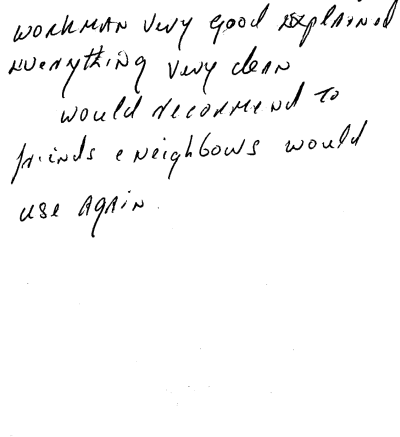 WORKMAN very good explained
everything very clean
would recommend to
friends e Neighbows would
use AgAiN.